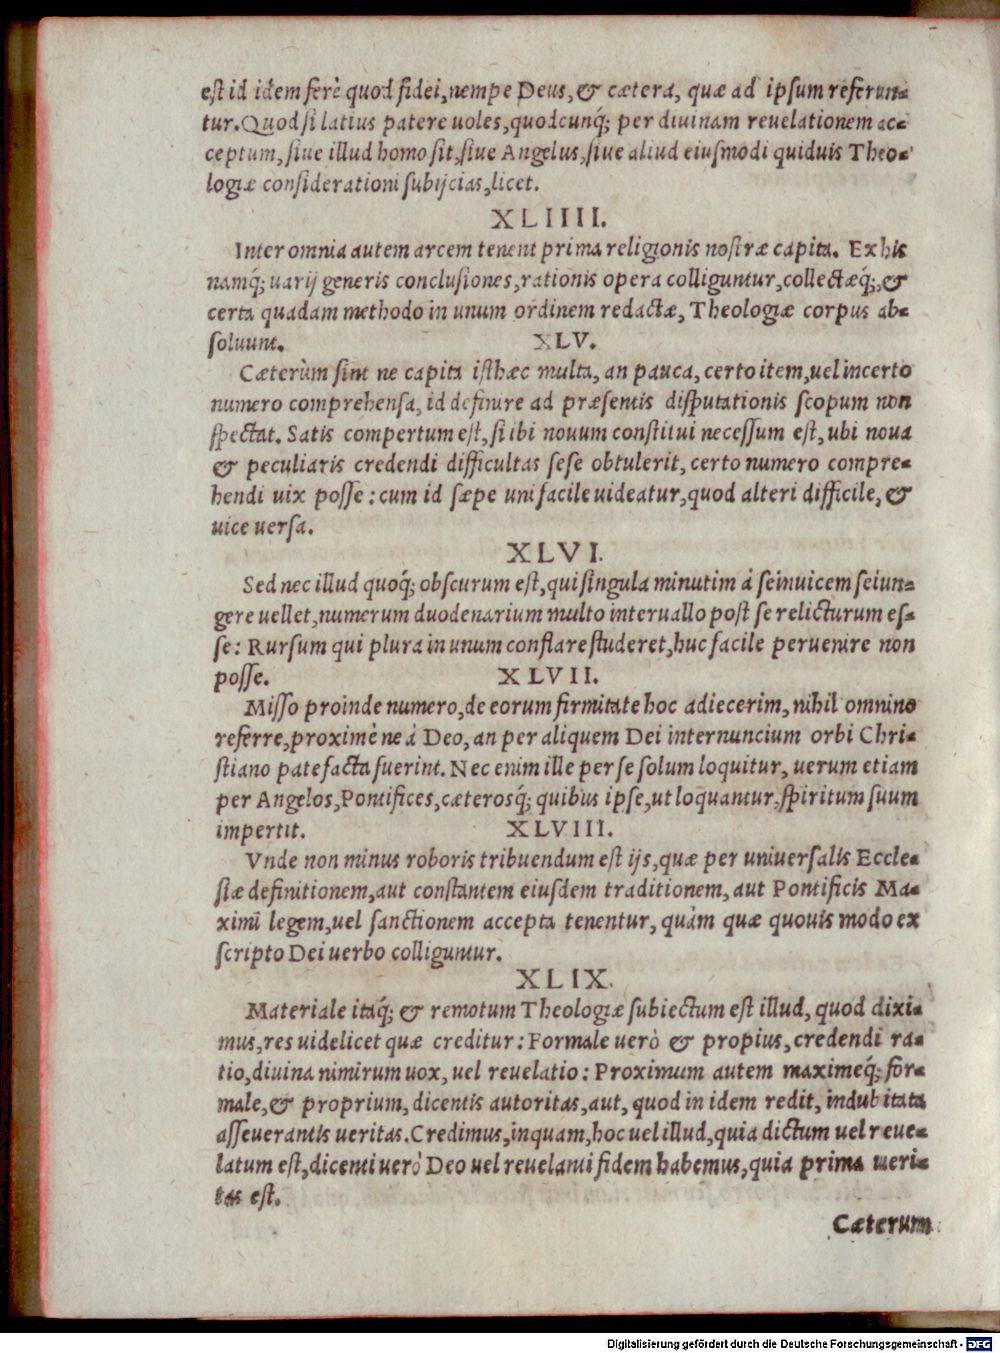 est id idem ferè quod fidei, nempe Deus, & cætera, quæ ad ipsum referun-
tur. Quod si latius patere uoles, quodcunq́; per diuinam reuelationem ac-
ceptum, siue illud homo sit, siue Angelus, siue aliud eiusmodi quiduis Theo-
logiæ considerationi subijcias, licet.
XLIIII.
Inter omnia autem arcem tenent prima religionis nostræ capita. Ex his
namq́; uarij generis conclusiones, rationis opera colliguntur, collectæq́;, &
certa quadam methodo in unum ordinem redactæ, Theologiæ corpus ab-
soluunt. XLV.
Cæterùm sint ne capita isthæc multa, an pauca, certo item, uel incerto
numero comprehensa, id definire ad præsentis disputationis scopum non
spectat. Satis compertum est, si ibi nouum constitui necessum est, ubi noua
& peculiaris credendi difficultas sese obtulerit, certo numero compre-
hendi uix posse: cum id sæpe uni facile uideatur, quod alteri difficile, &
uice uersa.
XLVI.
Sed nec illud quoq́; obscurum est, qui singula minutim à seinuicem seiun-
gere uellet, numerum duodenarium multo interuallo post se relicturum es-
se: Rursum qui plura in unum conflare studeret, huc facile peruenire non
posse. XLVII.
Misso proinde numero, de eorum firmitate hoc adiecerim, nihil omnino
referre, proximè ne à Deo, an per aliquem Dei internuncium orbi Chri-
stiano patefacta fuerint. Nec enim ille per se solum loquitur, uerum etiam
per Angelos, Pontifices, cæterosq́; quibus ipse, ut loquantur, spiritum suum
impertit. XLVIII.
Vnde non minus roboris tribuendum est ijs, quæ per uniuersalis Eccle-
siæ definitionem, aut constantem eiusdem traditionem, aut Pontificis Ma-
ximi legem, uel sanctionem accepta tenentur, quàm quæ quouis modo ex
scripto Dei uerbo colliguntur.
XLIX.
Materiale itaq́; & remotum Theologiæ subiectum est illud, quod dixi-
mus, res uidelicet quæ creditur: Formale uerò & propius, credendi ra-
tio, diuina nimirum uox, uel reuelatio: Proximum autem maximeq́; for-
male, & proprium, dicentis autoritas, aut, quod in idem redit, indubitata
asseuerantis ueritas. Credimus, inquam, hoc uel illud, quia dictum uel reue-
latum est, dicenti uerò Deo uel reuelanti fidem habemus, quia prima ueri-
tas est.
Cæterum
Digitalisierung gefördert durch die Deutsche Forschungsgemeinschaft - DFG